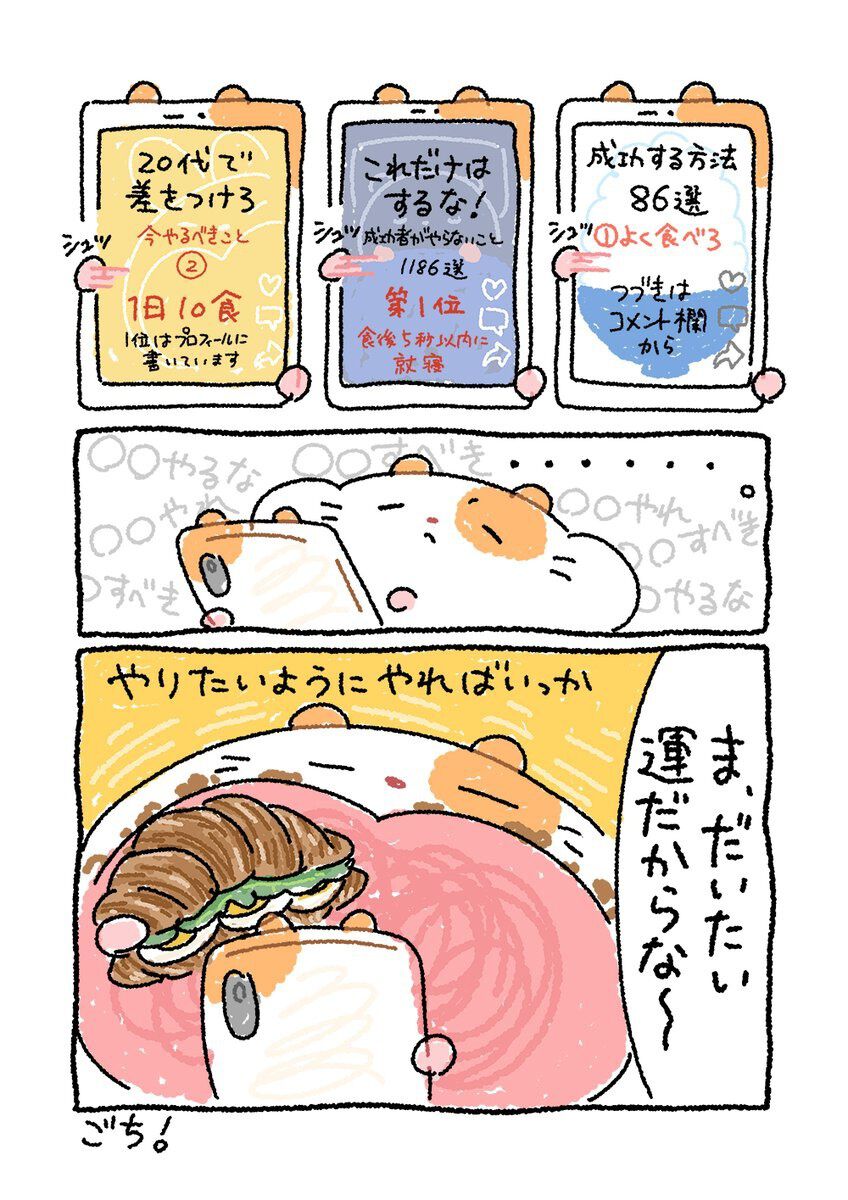 20代で
差をつけろ
今やるべきこと
②
1日10食
1位はプロフィールに
書いています
シュッ
これだけは
するな!
成功者がやらないこと
1186選
第1位
食後5秒以内に
就寝
シュッ
成功する方法
86選
①よく食べろ
つづきは
コメント欄
から
シュッ
〇〇やるな
〇〇すべき
〇〇やれ
〇すべき
・・・・・・・。
〇〇やれ
〇〇すべき
〇やるな
ま、だいたい
運だからな〜
やりたいようにやればいっか
ごち!